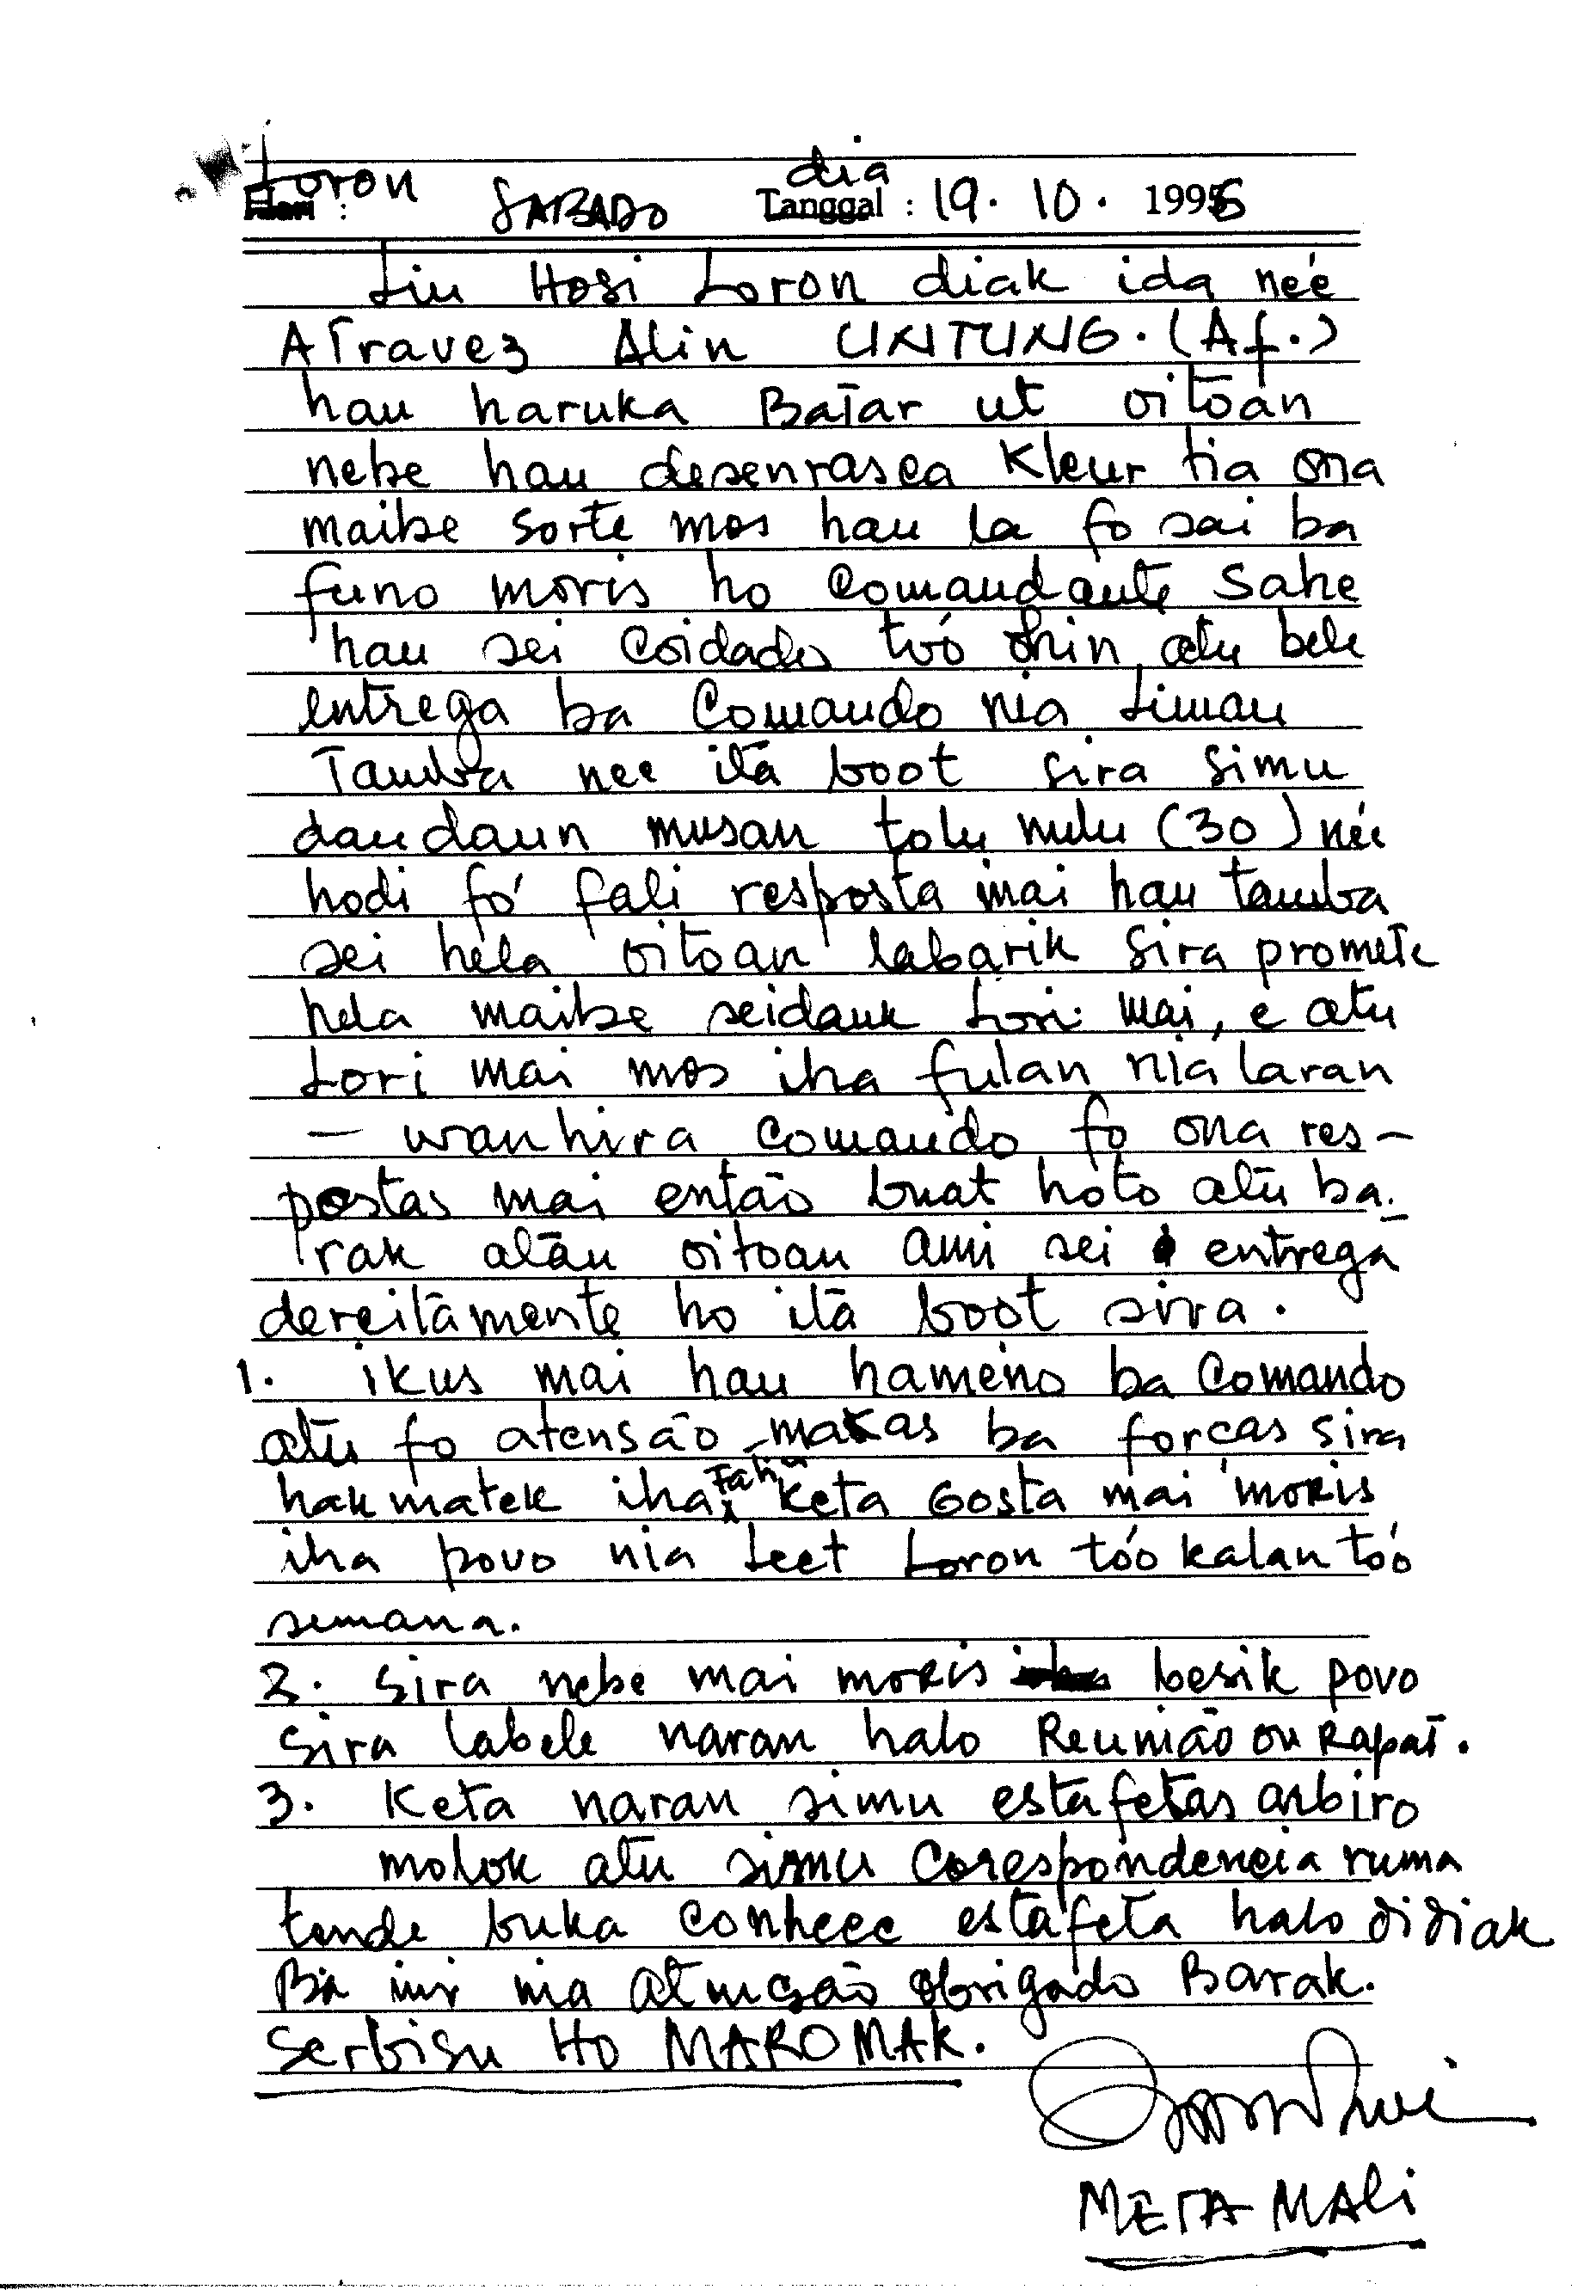 Loron : SABADO dia Tanggal : 19. 10. 1996
Liu Hosi Loron diak ida neé
ATravez Alin UNTUNG. (Af.)
hau haruka Batar ut oitoan
nebe hau desenrasca Kleur tia ona
maibe sorte mos hau la fo sai ba
funo moris ho Comandante Sahe
hau sei Coidados tóo ohin atu bele
entrega ba Comando nia Liman
Tamba nee ita boot sira simu
daudaun musan tolu nulu (30) neé
hodi fó fali resposta mai hau tamba
sei hela oitoan labarik sira promete
hela maibe seidauk Lori mai, e atu
Lori mai mos iha fulan nia laran
— wanhira Comando fo ona res-
postas mai então buat hoto atu ba-
rak atau oitoan Ami sei entrega
dereitamente ho ita boot sira.
1. ikus mai hau hameno ba Comando
atu fo atensão makas ba forcas sira
hakmatek iha Fatin keta Gosta mai moris
iha povo nia Leet Loron tóo kalan tóo
semana.
2. Sira nebe mai moris besik povo
Sira labele naran halo Reunião ou Rapat.
3. Keta naran simu estafetas arbiro
molok atu simu Corespondencia ruma
tende buka Conhece estafeta halo didiak
Ba imi nia Atensão obrigado Barak.
Serbisu Ho MAROMAK.
META MALi